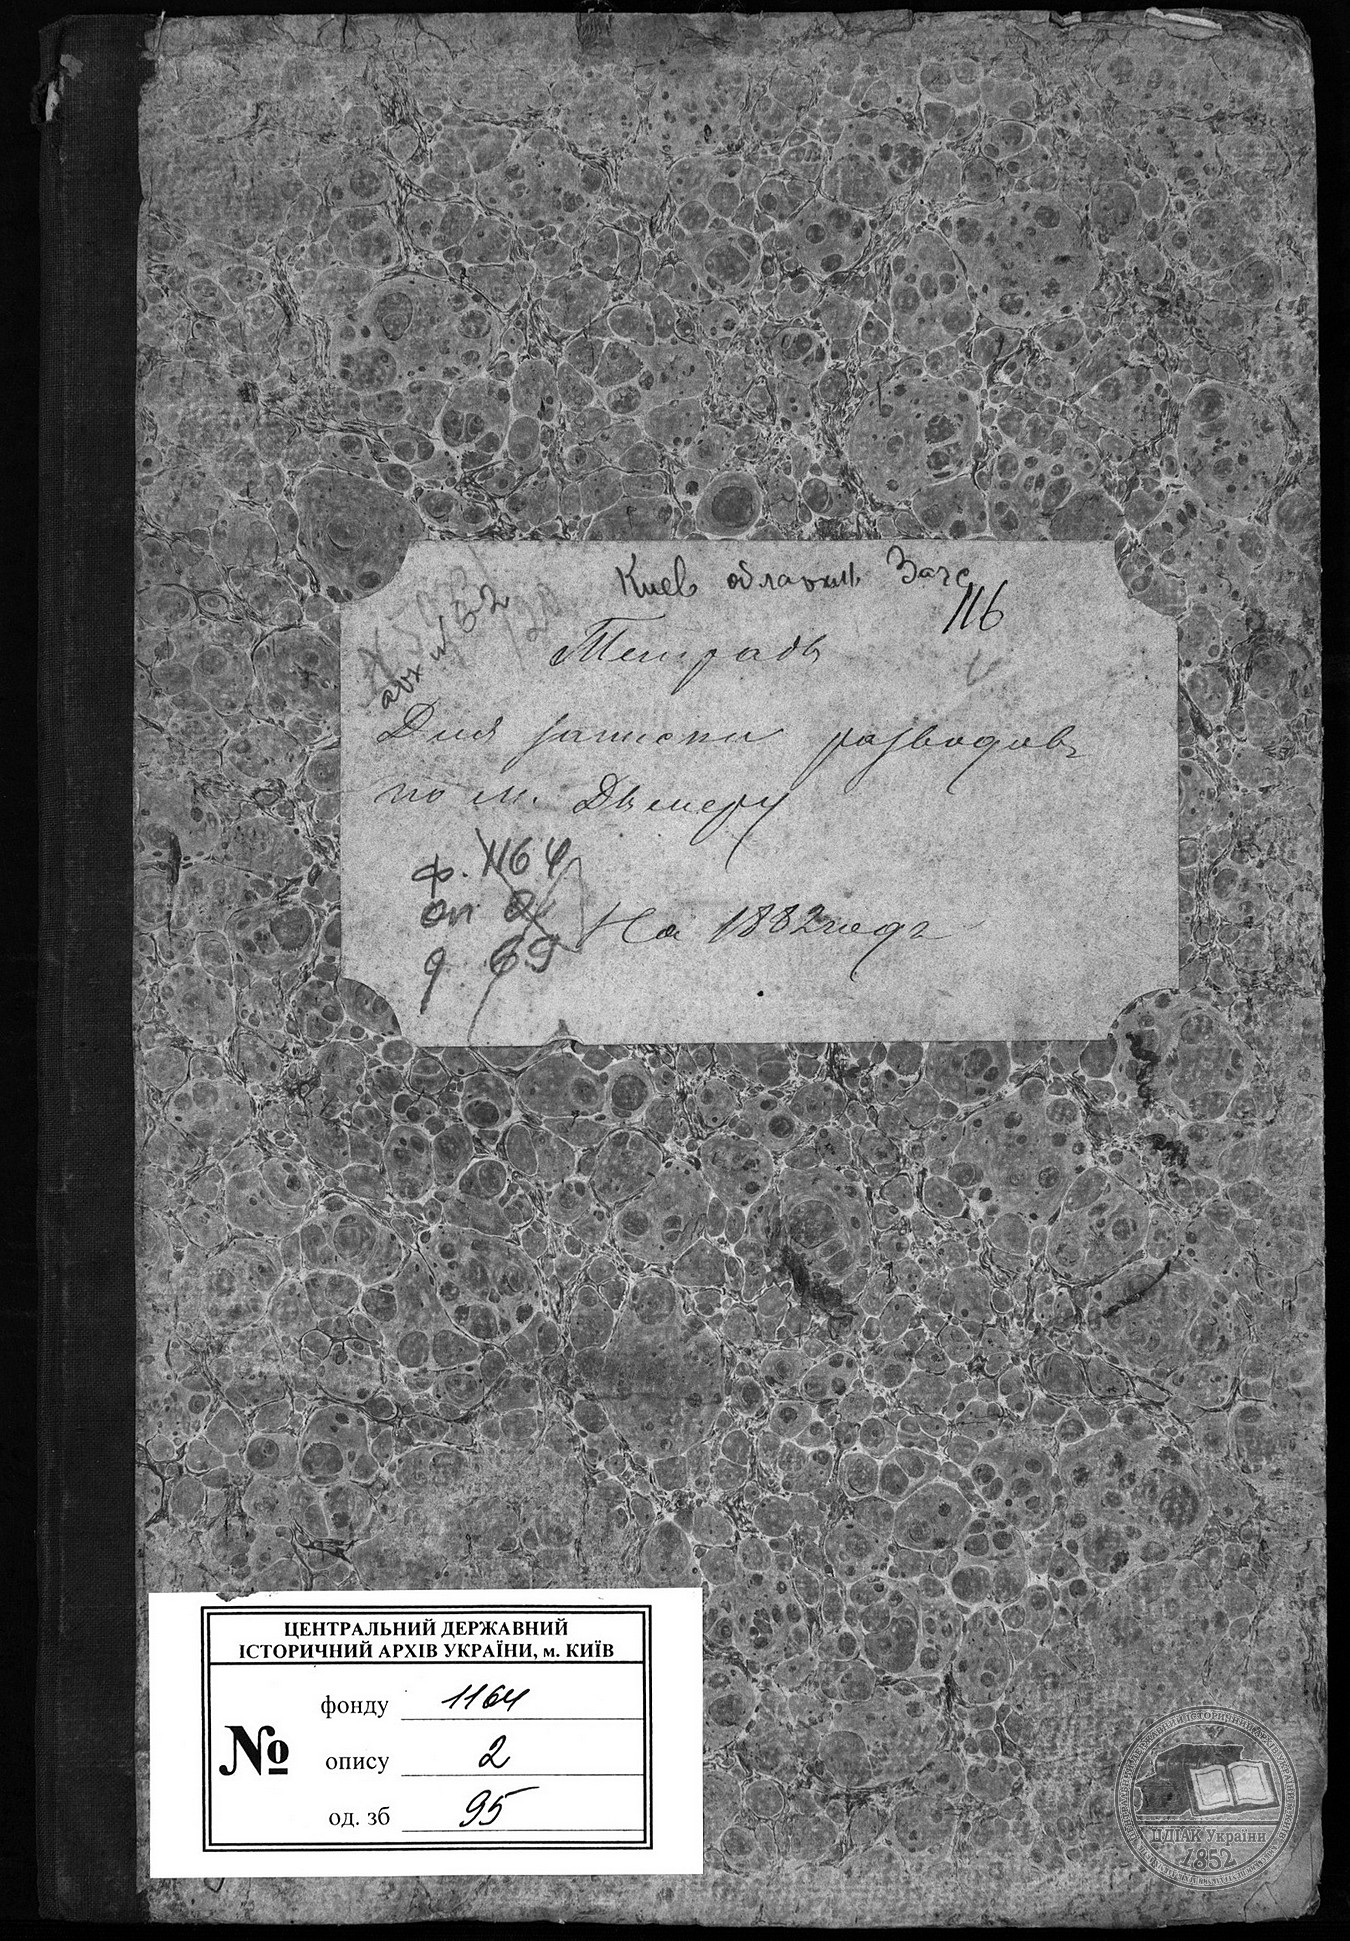 Киев облархив Загс
116
арх № 62
Тетрадь
Для записки разводовъ
по м. Дымеру
ф. 1164
оп 2
д 69
На 1882 годъ
ЦЕНТРАЛЬНИЙ ДЕРЖАВНИЙ
ІСТОРИЧНИЙ АРХІВ УКРАЇНИ, м. КИЇВ
№
фонду 1164
опису 2
од. зб 95
ЦДІАК України
1852